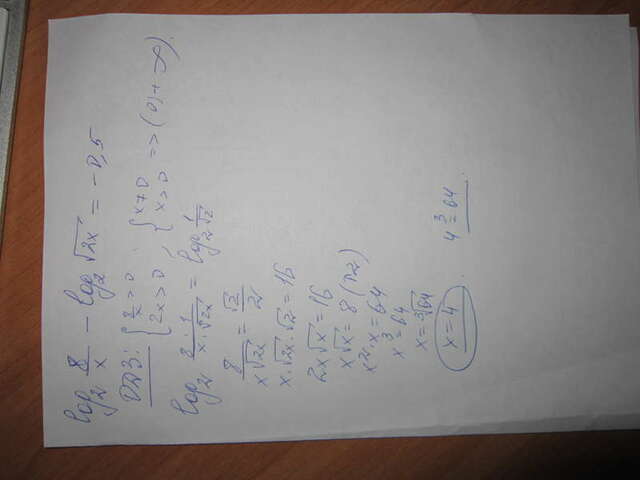 log₂ 8/x − log₂ √2x = −0,5
ОДЗ: { 8/x > 0 2x > 0 , { x ≠ 0 x > 0 => (0; +∞).
log₂ 8·1/x·√2x = log₂ 1/√2
8/x√2x = √2/2
x·√2x·√2 = 16
2x√x = 16
x√x = 8 (^2)
x²·x = 64
x³ = 64
x = ³√64
x = 4 . 4³ = 64